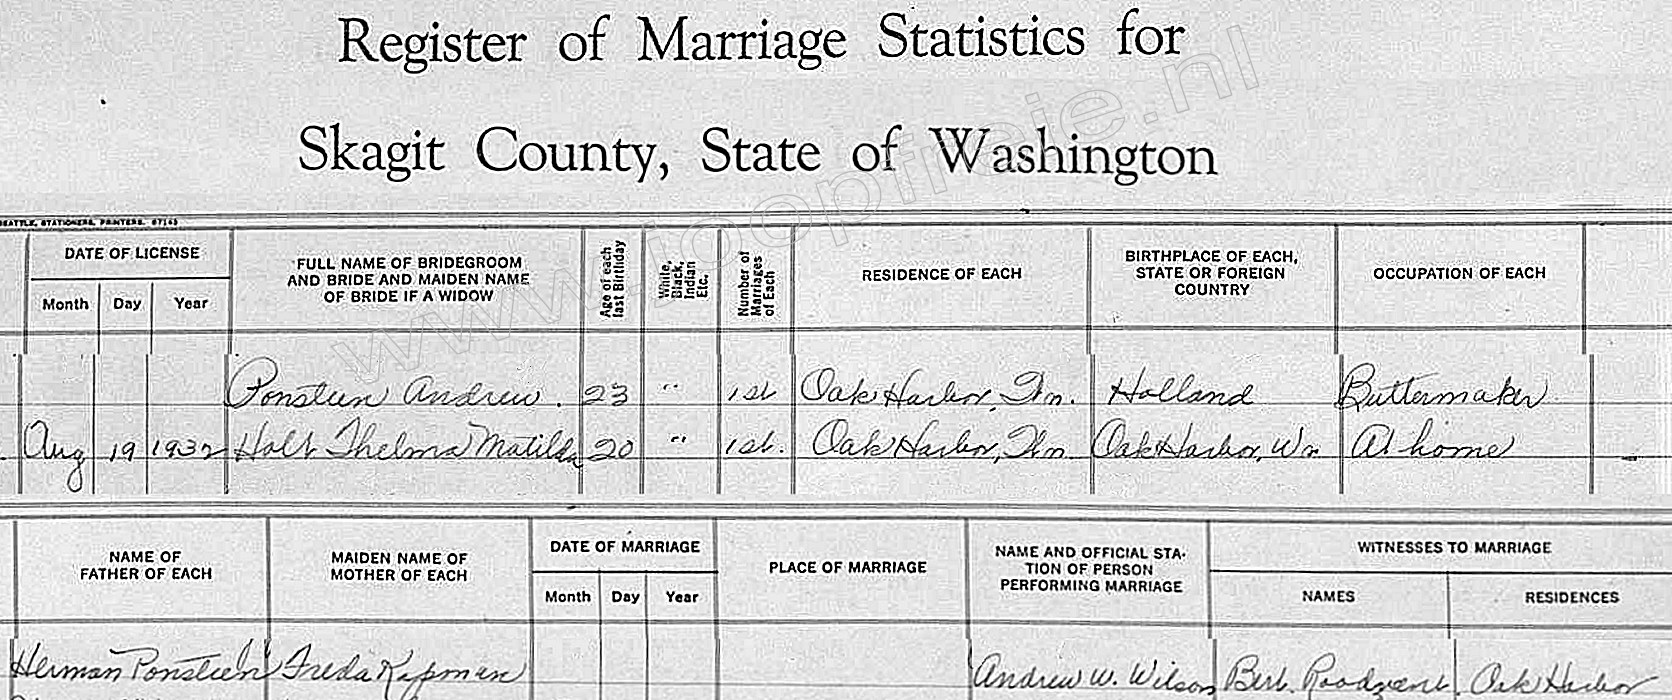 Register of Marriage Statistics for
Skagit County, State of Washington
www.joopfreie.nl
SEATTLE, STATIONERS, PRINTERS. 87163
DATE OF LICENSE
Month Day Year
FULL NAME OF BRIDEGROOM
AND BRIDE AND MAIDEN NAME
OF BRIDE IF A WIDOW
Age of each
last Birthday
White,
Black,
Indian
Etc.
Number of
Marriages
of Each
RESIDENCE OF EACH
BIRTHPLACE OF EACH,
STATE OR FOREIGN
COUNTRY
OCCUPATION OF EACH
Ponsteen Andrew. 23 " 1st Oak Harbor, Wn. Holland Buttermaker
Aug 19 1932 Holt Thelma Matilda 20 " 1st. Oak Harbor, Wn Oak Harbor, Wn At home
NAME OF
FATHER OF EACH
MAIDEN NAME OF
MOTHER OF EACH
DATE OF MARRIAGE
Month Day Year
PLACE OF MARRIAGE
NAME AND OFFICIAL STA-
TION OF PERSON
PERFORMING MARRIAGE
WITNESSES TO MARRIAGE
NAMES RESIDENCES
Herman Ponsteen Freda Kapman Andrew W. Wilson Bert. Oak Harbor